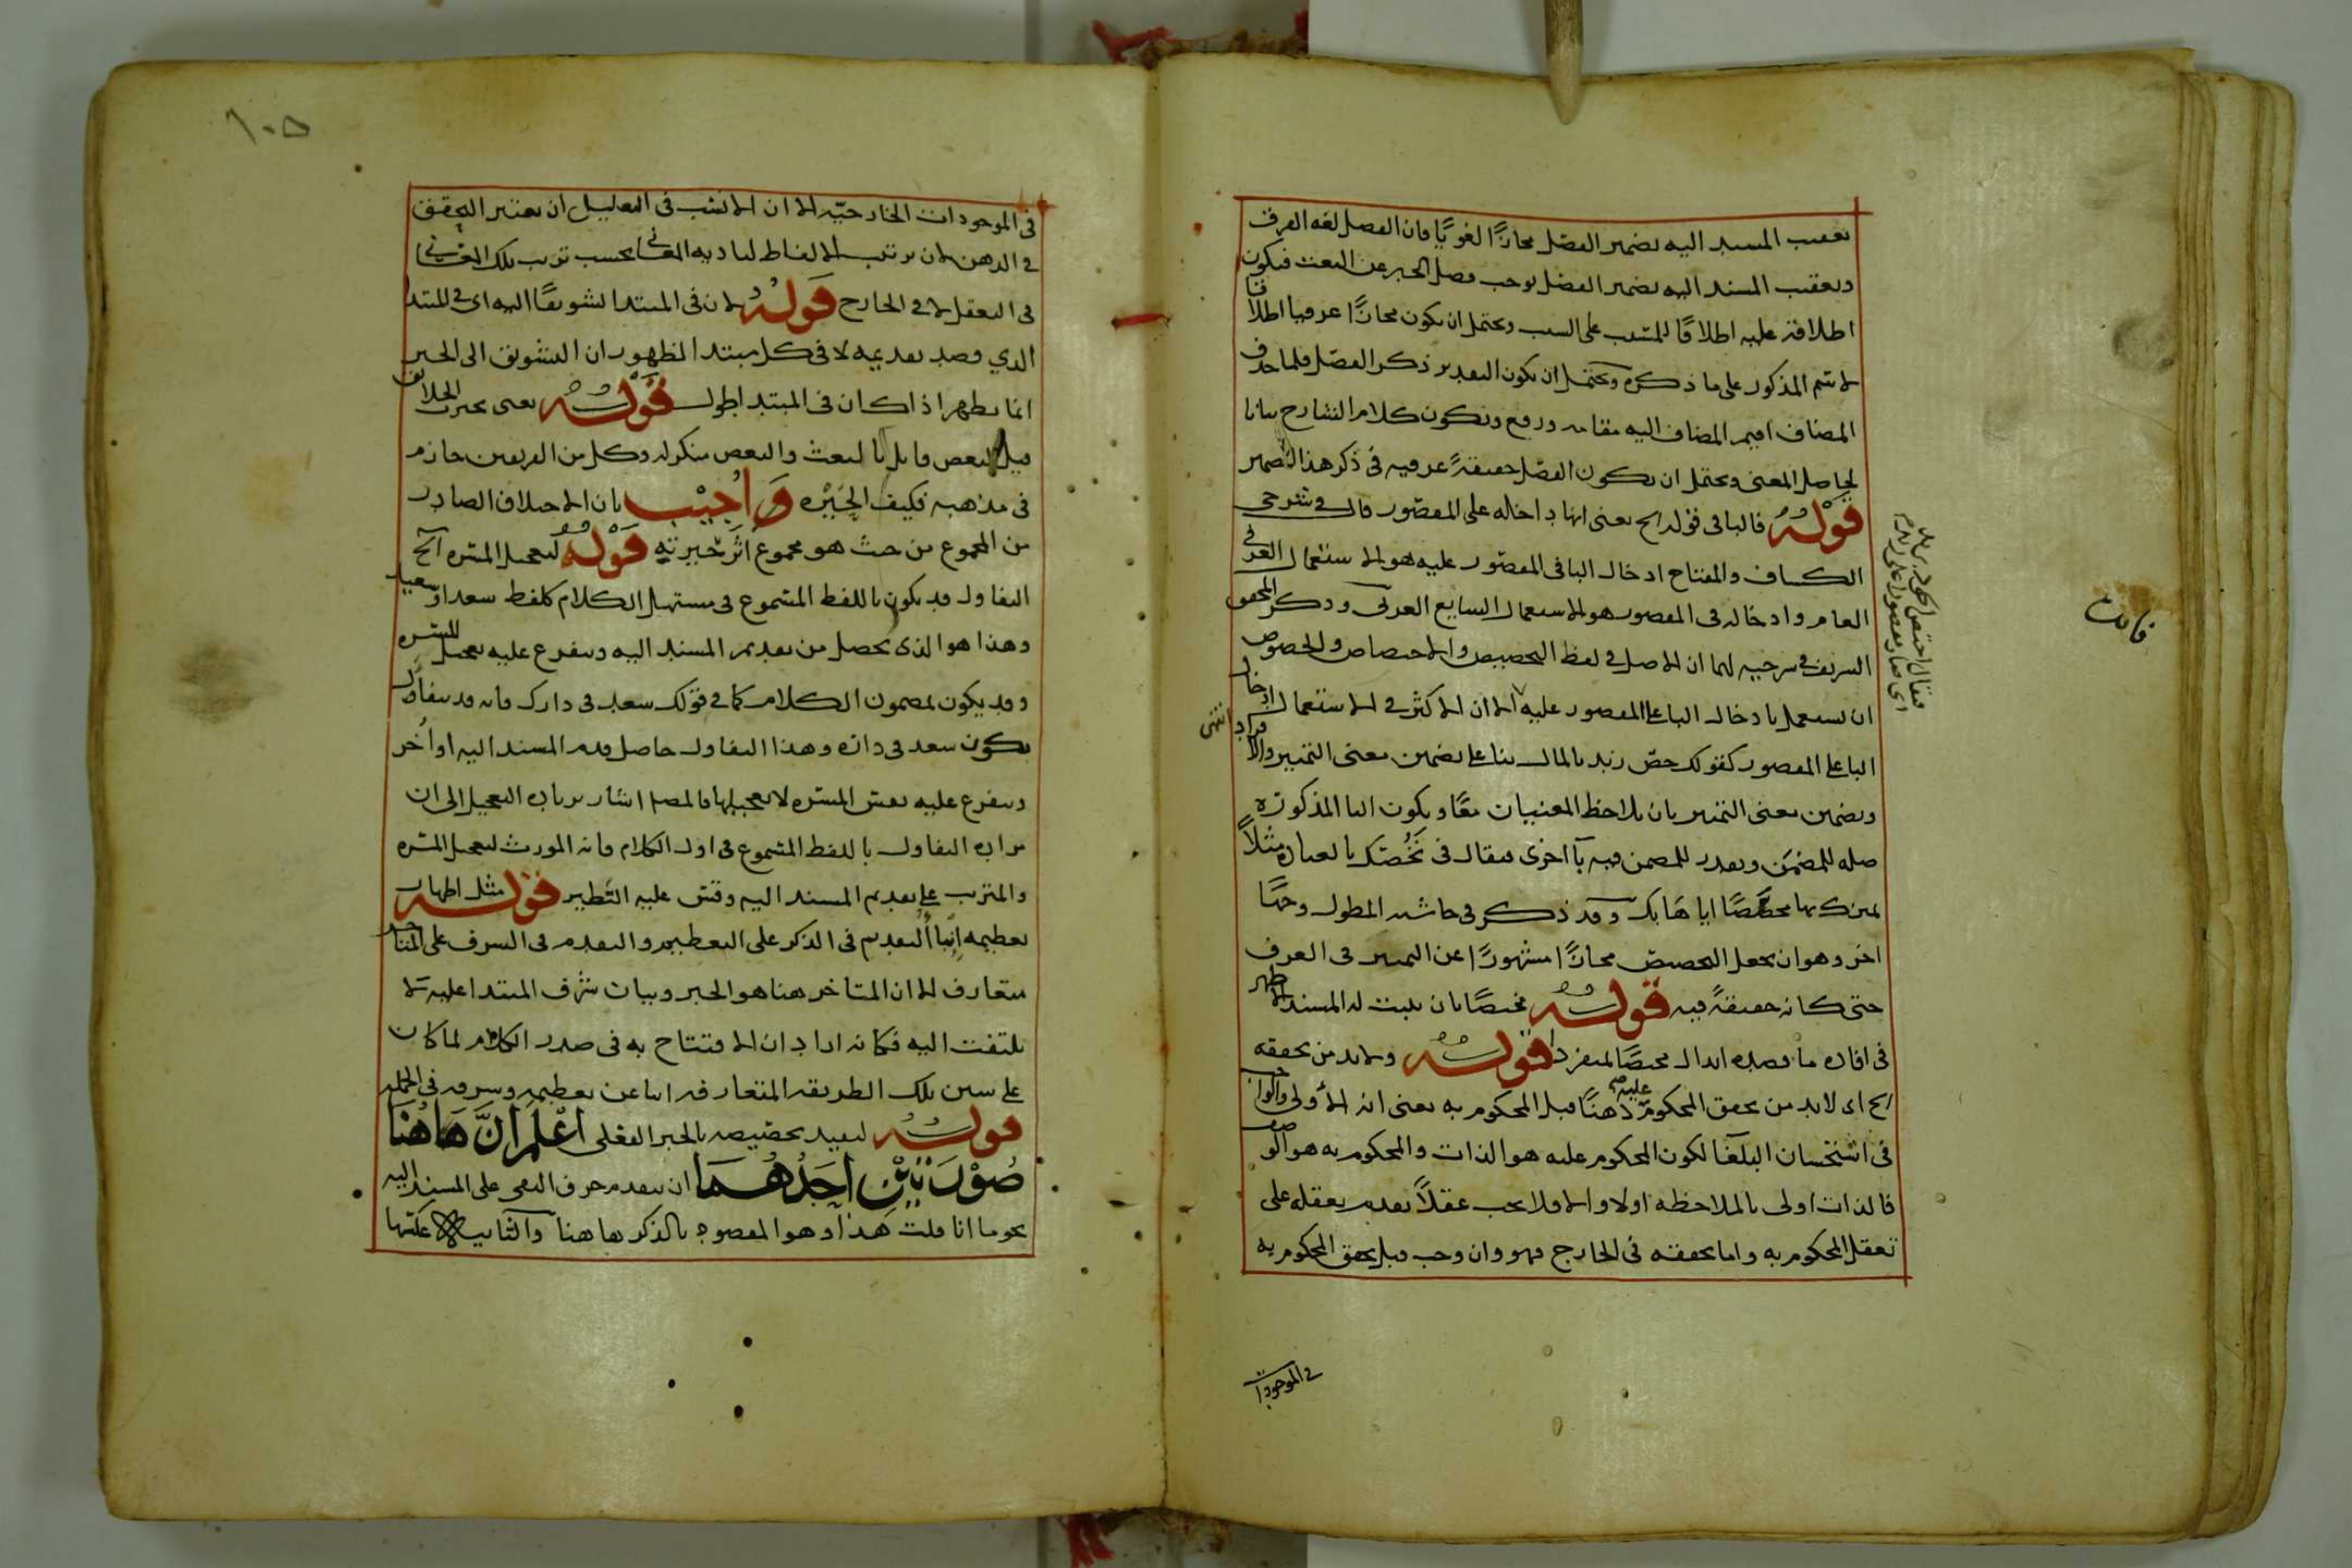 تعقيب المسند اليه بضمير الفصل مجازًا لغويًا فان الفصل لغة الفرق
وتعقيب المسند اليه بضمير الفصل يوجب فصل الخبر عن النعت فيكون
اطلاقه عليه اطلاقًا للمسبب على السبب ويحتمل ان يكون مجازًا عرفيا اطلاقًا
لاسم المذكور على ما ذكره ويحتمل ان يكون التقدير ذكر الفصل فلما حذف
المضاف اقيم المضاف اليه مقامه ورفع ويكون كلام الشارح بيانا
لحاصل المعنى ويحتمل ان يكون الفصل حقيقةً عرفيه فى ذكر هذا الضمير
قوله فالبا فى قوله الخ يعنى انها داخله على المقصور قال فى شرحى
الكشاف والمفتاح ادخال البا فى المقصور عليه هو الاستعمال العرفى
العام وادخاله فى المقصور هو الاستعمال الشايع العربى وذكر المحقق
الشريف فى شرحيه لهما ان الاصل فى لفظ التخصيص والاختصاص والخصوص
ان يستعمل بادخال البا على المقصور عليه الا ان الاكثر فى الاستعمال ادخال
البا على المقصور كقولك خص زيد بالمال بنا على تضمين معنى التمييز والافراد انتهى
وتضمين معنى التمييز بان يلاحظ المعنيان معًا ويكون البا المذكورة
صله للمضمن ويقدر للمضمن فيه بآ اخرى فيقال فى نَخُصّك بالعبادة مثلاً
نميزك بها مخصصًا اياها بك وقد ذكر فى حاشيه المطول وجهًا
اخر وهو ان يجعل التخصيص مجازًا مشهورًا عن التمييز فى العرف
حتى كانه حقيقةً فيه قوله مختصًا بان يثبت له المسند الاظهر
فى افادة ما قصده ابدال مختصًا بمنفردا قوله ولا بد من تحققه
الخ اى لابد من تحقق المحكوم عليه ذهنًا قبل المحكوم به يعنى انه الأولى والواجب
فى استحسان البلغا لكون المحكوم عليه هو الذات والمحكوم به هو الوصف
فالذات اولى بالملاحظة اولا والا فلا يجب عقلاً تقديم تعقله على
تعقل المحكوم به واما تحققه فى الخارج فهو وان وجب قبل تحقق المحكوم به
فى الموجودات
فيقال اختص الجود بزيد
اى صار مقصورا على زيد
١٠٥
فى الموجودات الخارجيّه الا ان الانسب فى التعليل ان يعتبر التحقق
فى الذهن لان ترتيب الالفاظ لتادية المعانى بحسب ترتيب تلك المعانى
فى التعقل لا فى الخارج قوله لان فى المبتدا تشويقًا اليه اى فى المبتدا
الذي قصد تقديمه لا فى كل مبتدا لظهور ان التشويق الى الخبر
انما يظهر اذا كان فى المبتدا طول قوله يعنى تحيرت الخلائق
قيل البعض قايل بالبعث والبعض منكر له وكل من الفريقين جازم
فى مذهبه فكيف الحَيْرَه وَاُجِيْب بان الاختلاف الصادر
من المجموع من حيث هو مجموع أثر حيرته قوله لتعجيل المسرة الخ
التفاول قد يكون باللفظ المسموع فى مستهل الكلام كلفظ سعد او سعيد
وهذا هو الذى يحصل من تقديم المسند اليه ويتفرع عليه تعجيل المسره
وقد يكون بمضمون الكلام كما فى قولك سعد فى دارك فانه قد يتفاول
بكون سعد فى داره وهذا التفاول حاصل قدم المسند اليه او أخر
ويتفرع عليه نفس المسره لا تعجيلها فالمصـ اشار بزيادة التعجيل الى ان
مراده التفاول باللفظ المسموع فى اول الكلام فانه المورث لتعجيل المسره
والمترتب على تقديم المسند اليه وقس عليه التطير قوله مثل اظهار
تعظيمه إنبأ التقديم فى الذكر على التعظيم والتقدم فى الشرف على المتاخر
متعارف الا ان المتاخر هنا هو الخبر وبيان شرف المبتدا عليه لا
يلتفت اليه فكانه اراد ان الافتتاح به فى صدر الكلام لما كان
على سنن تلك الطريقه المتعارفه انبا عن تعظيمه وشرفه فى الجمله
قوله ليفيد تخصيصه بالخبر الفعلى اعْلَم انَّ هَاهُنَا
صُوْرَتَيْن اَحَدُهُمَا ان يتقدم حرف النفى على المسند اليه
نحو ما انا قلت هذا وهو المقصود بالذكر هاهنا والثانيه عكسها